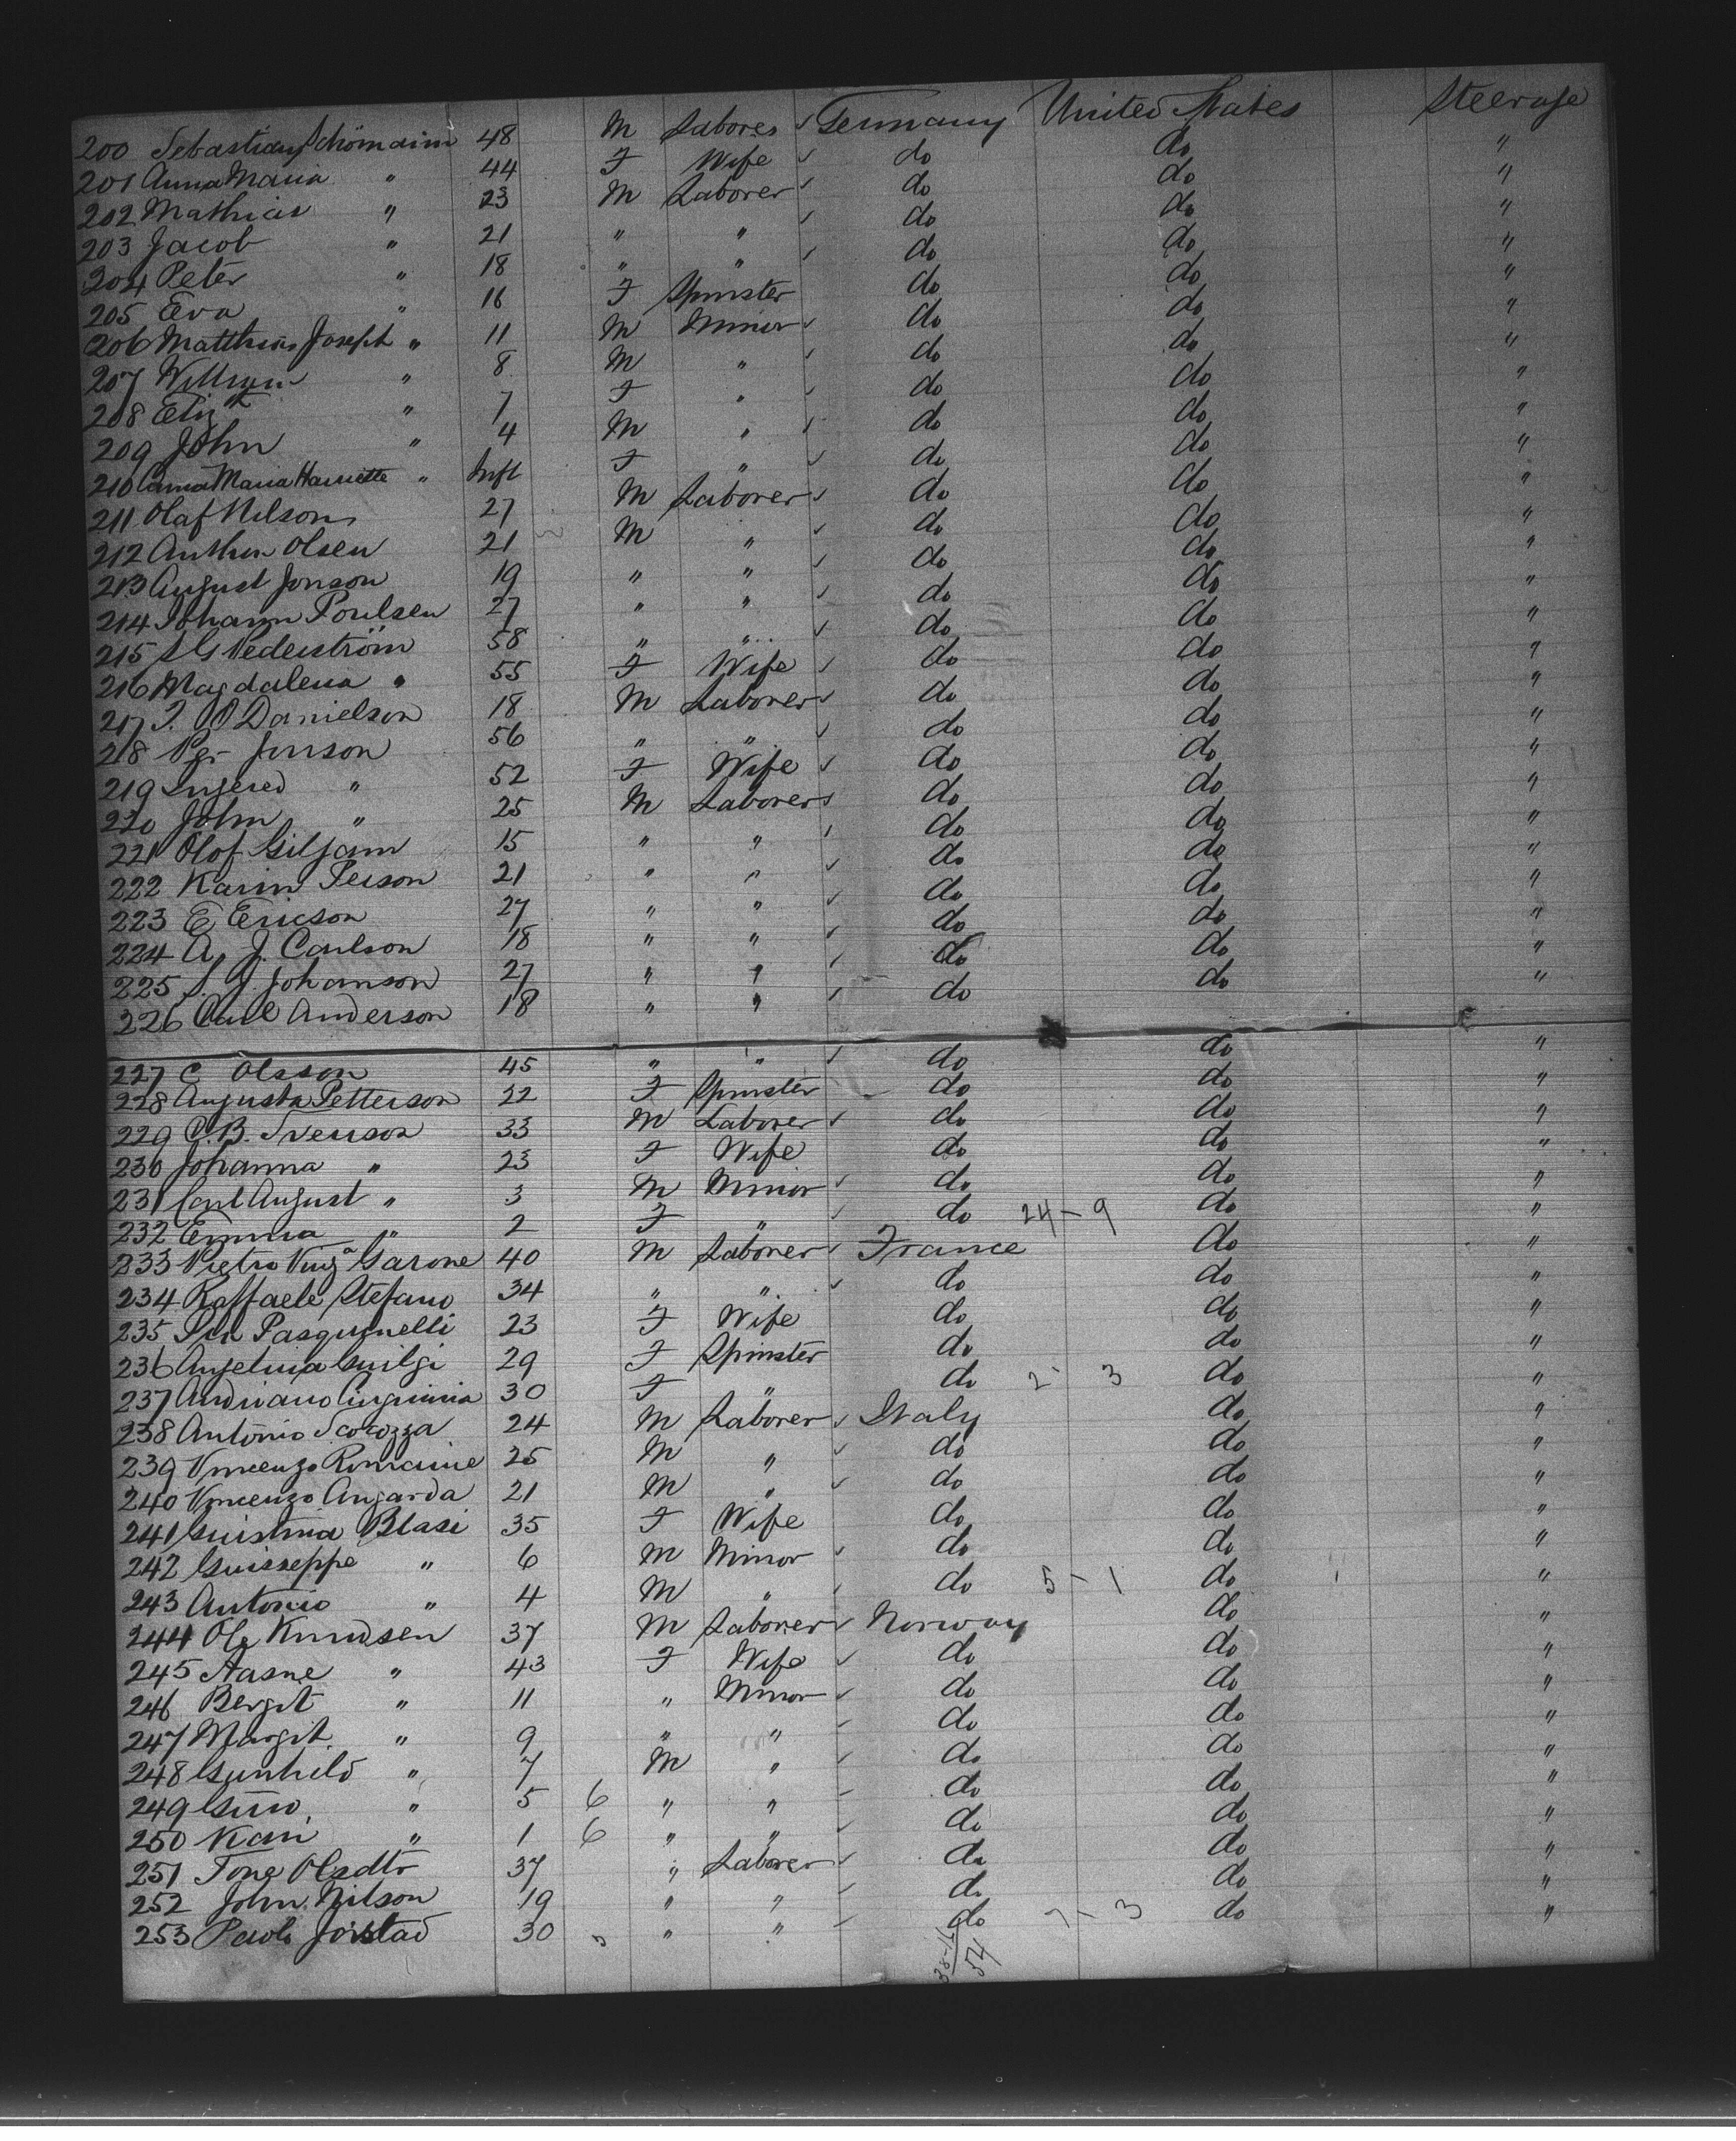 200 Sebastian Schömaim 48 M Laborer ✓ Germany United States Steerage
201 Anna Maria " 44 F Wife ✓ do do "
202 Mathias " 23 M Laborer ✓ do do "
203 Jacob " 21 " " ✓ do do "
204 Peter " 18 " " ✓ do do "
205 Eva " 16 F Spinster do do "
206 Matthias Joseph " 11 M Minor ✓ do do "
207 William " 8 M " ✓ do do "
208 Elizth " 7 F " ✓ do do "
209 John " 4 M " ✓ do do "
210 Anna Maria Harriette " Inft F " ✓ do do "
211 Olaf Nelson 27 M Laborer ✓ do do "
212 Anthon Olsen 21 M " ✓ do do "
213 August Jonson 19 " " ✓ do do "
214 Johann Poulsen 27 " " ✓ do do "
215 S G Pederström 58 " " ✓ do do "
216 Magdalena " 55 F Wife ✓ do do "
217 J. O Danielson 18 M Laborer ✓ do do "
218 Per Jonson 56 " " ✓ do do "
219 Ingered " 52 F Wife ✓ do do "
220 John " 25 M Laborer ✓ do do "
221 Olof Giljam 15 " " ✓ do do "
222 Karin Person 21 " " ✓ do do "
223 E Ericson 27 " " ✓ do do "
224 A. J. Carlson 18 " " ✓ do do "
225 S. J. Johanson 27 " " ✓ do do "
226 Carl Anderson 18 " " ✓ do do "
227 C Olsson 45 " " ✓ do do "
228 Augusta Petterson 22 F Spinster do do "
229 C. B. Svenson 33 M Laborer ✓ do do "
230 Johanna " 23 F Wife do do "
231 Carl August " 3 M Minor ✓ do do "
232 Emma " 2 F " ✓ do 24 - 9 do "
233 Pietro Vinza Garone 40 M Laborer ✓ France do "
234 Raffaele Stefano 34 " " ✓ do do "
235 Pasquinelli 23 F Wife do do "
236 Angelina Guilgi 29 F Spinster do do "
237 Andriano 30 F " do 2 - 3 do "
238 Antonio Scorozza 24 M Laborer ✓ Italy do "
239 Vincenzo Romaine 25 M " ✓ do do "
240 Vincenzo Angarda 21 M " ✓ do do "
241 Guistina Blasi 35 F Wife do do "
242 Guisseppe " 6 M Minor ✓ do do "
243 Antonio " 4 M " ✓ do 5 - 1 do "
244 Ole Knudsen 37 M Laborer ✓ Norway do "
245 Aasne " 43 F Wife ✓ do do "
246 Bergit " 11 " Minor ✓ do do "
247 Margit " 9 " " ✓ do do "
248 Gunhild " 7 M " ✓ do do "
249 Guro " 5 6 " " ✓ do do "
250 Kari " 1 6 " " ✓ do do "
251 Tone Olsdtr 37 " Laborer ✓ do do "
252 John Nilson 19 " " ✓ do do "
253 Paolo Jorstad 30 " " ✓ do 7 - 3 do "
38-16
54